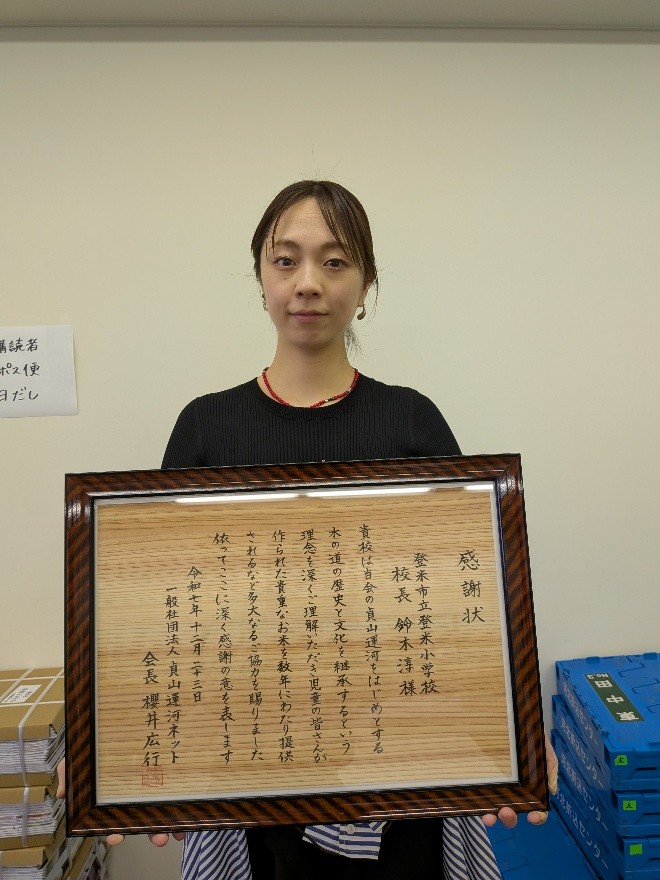 感謝状
登米市立登米小学校
校長 鈴木淳様
貴校は当会の貞山運河をはじめとする
水の道の歴史と文化を継承するという
理念を深くご理解いただき児童の皆さんが
作られた貴重なお米を数年にわたり提供
されるなど多大なるご協力を賜りました
依ってここに深く感謝の意を表します
令和七年十二月二十三日
一般社団法人貞山運河ネット
会長 櫻井広行
購読者
ポス便
日だし
No.3
東中田